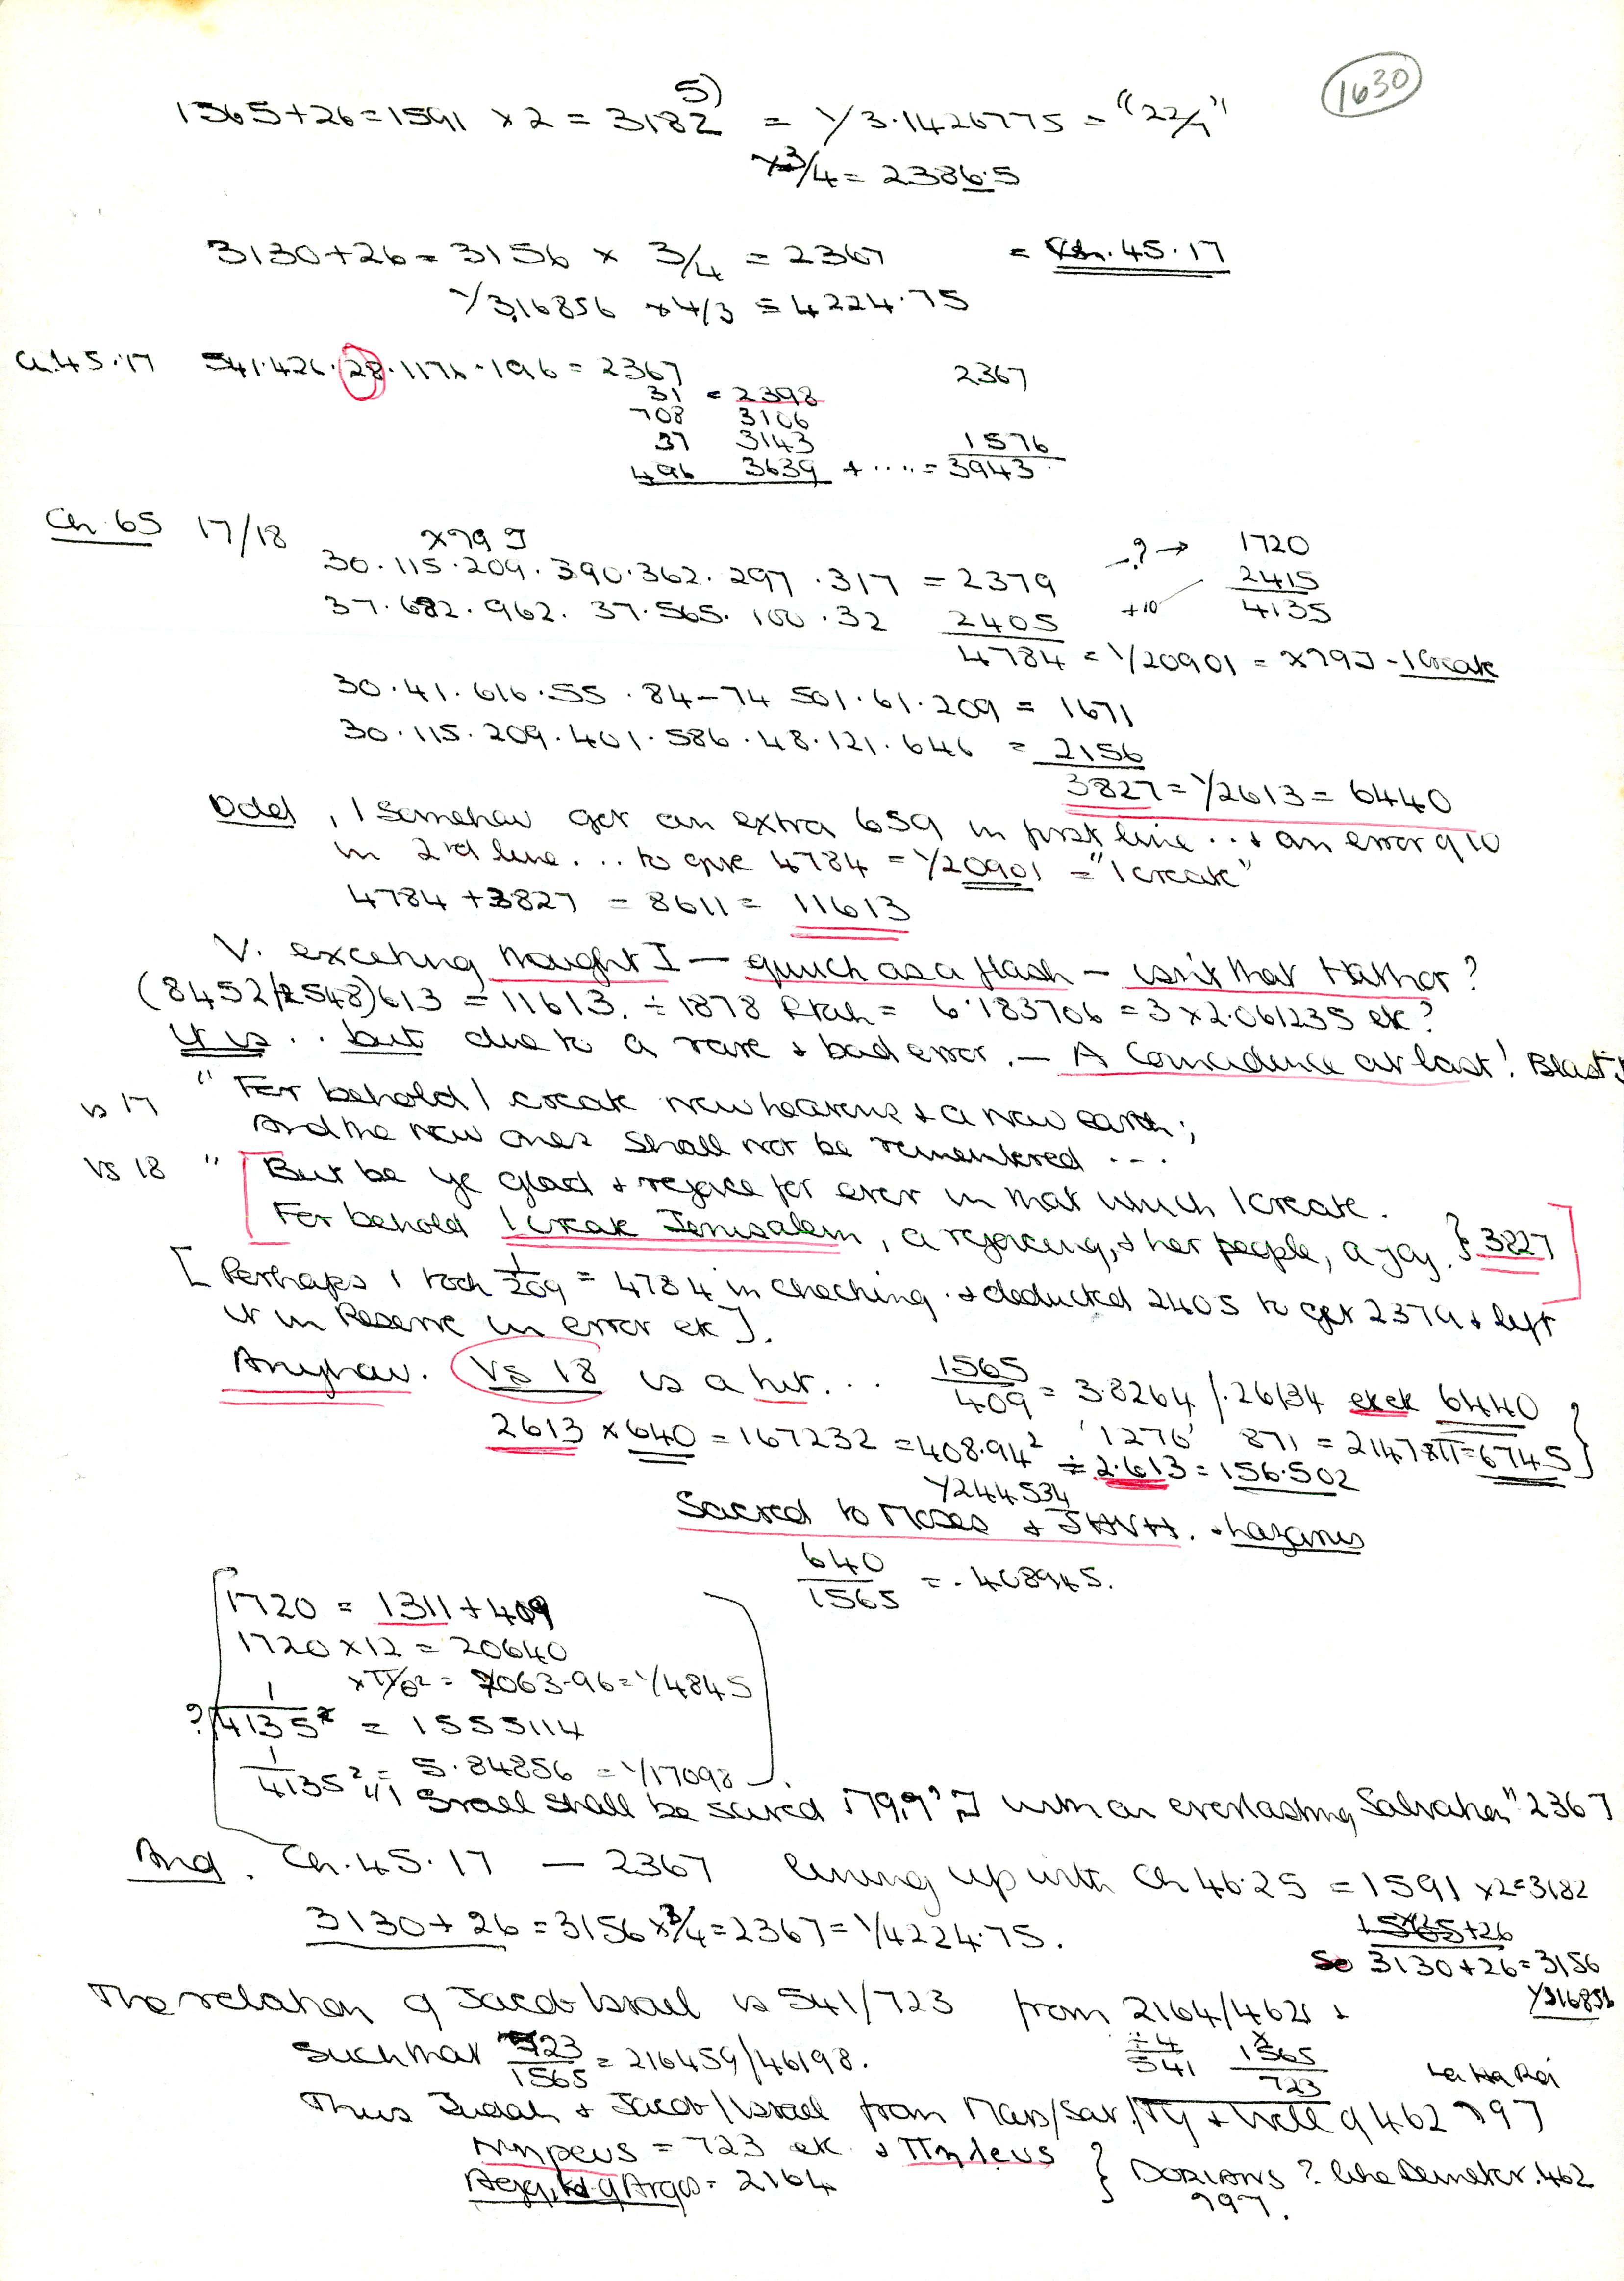 1630
1565+26=1591 ×2 = 3182 = 1/3.1426775 = "22/7"
5)
×3/4 = 2386.5
3130+26 = 3156 × 3/4 = 2367 = Ch. 45.17
1/316856 ×4/3 = 4224.75
Ch.45.17 541.426.28.1176.196 = 2367 2367
31 = 2398
708 3106
37 3143 1576
496 3639 + .... = 3943
Ch 65 17/18
30.115.209.390.362.297.317 = 2379 -?→ 1720
37.682.962.37.565.100.32 2405 +10 2415
4135
4784 = 1/20901 = - I create
30.41.616.55.84-74 501.61.209 = 1671
30.115.209.401.586.48.121.646 = 2156
3827 = 1/2613 = 6440
Odd, I somehow get an extra 659 in first line ... + an error of 10
in 2nd line ... to give 4784 = 1/20901 = "I create"
4784 + 3827 = 8611 = 11613
V. exciting thought I — quick as a flash — isn't that Hathor?
613 = 11613. ÷ 1878 Ptah = 6.183706 = 3 × 2.061235 etc?
It is .. but due to a rare + bad error. — A Coincidence at last! Blast it
vs 17 "For behold I create new heavens + a new earth;
And the new ones shall not be remembered ...
vs 18 " But be ye glad + rejoice for ever in that which I create.
For behold I create Jerusalem, a rejoicing, + her people, a joy. } 3827
[Perhaps I took 1/209 = 4784 in checking. + deducted 2405 to get 2379 + left
it in Reserve in error etc].
Anyhow. Vs 18 is a hit... 1565/409 = 3.8264 /.26134 etcetc 6440
2613 × 640 = 167232 = 408.94² '1276' 871 = 2147 ×π = 6745
÷ 2.613 = 156.502
1/244534
Sacred to Moses + JHVH. + Lazarus
640/1565 = .408945.
1720 = 1311 + 409
1720×12 = 20640
= 2063.96 = 1/4845
? = 1555114
1/4135² = 5.84856 = 1/17098
"Israel shall be saved in with an everlasting Salvation" 2367
And. Ch.45.17 — 2367 lining up with Ch 46.25 = 1591 ×2=3182
3130 + 26 = 3156 ×3/4 = 2367 = 1/4224.75. 1565+26
So 3130+26=3156
1/316856
The relation of Jacob Israel is 541/723 from 2164/4621 +
÷4 ×
541 1565
723
Such that 723/1565 = 216459/46198.
Thus Judah + Jacob/Israel from Mars/Sat./ + Well of 462 797
Nypeus = 723 etc. +
Kg of Argos = 2164 } DORIANS? like Demeter. 462
797.